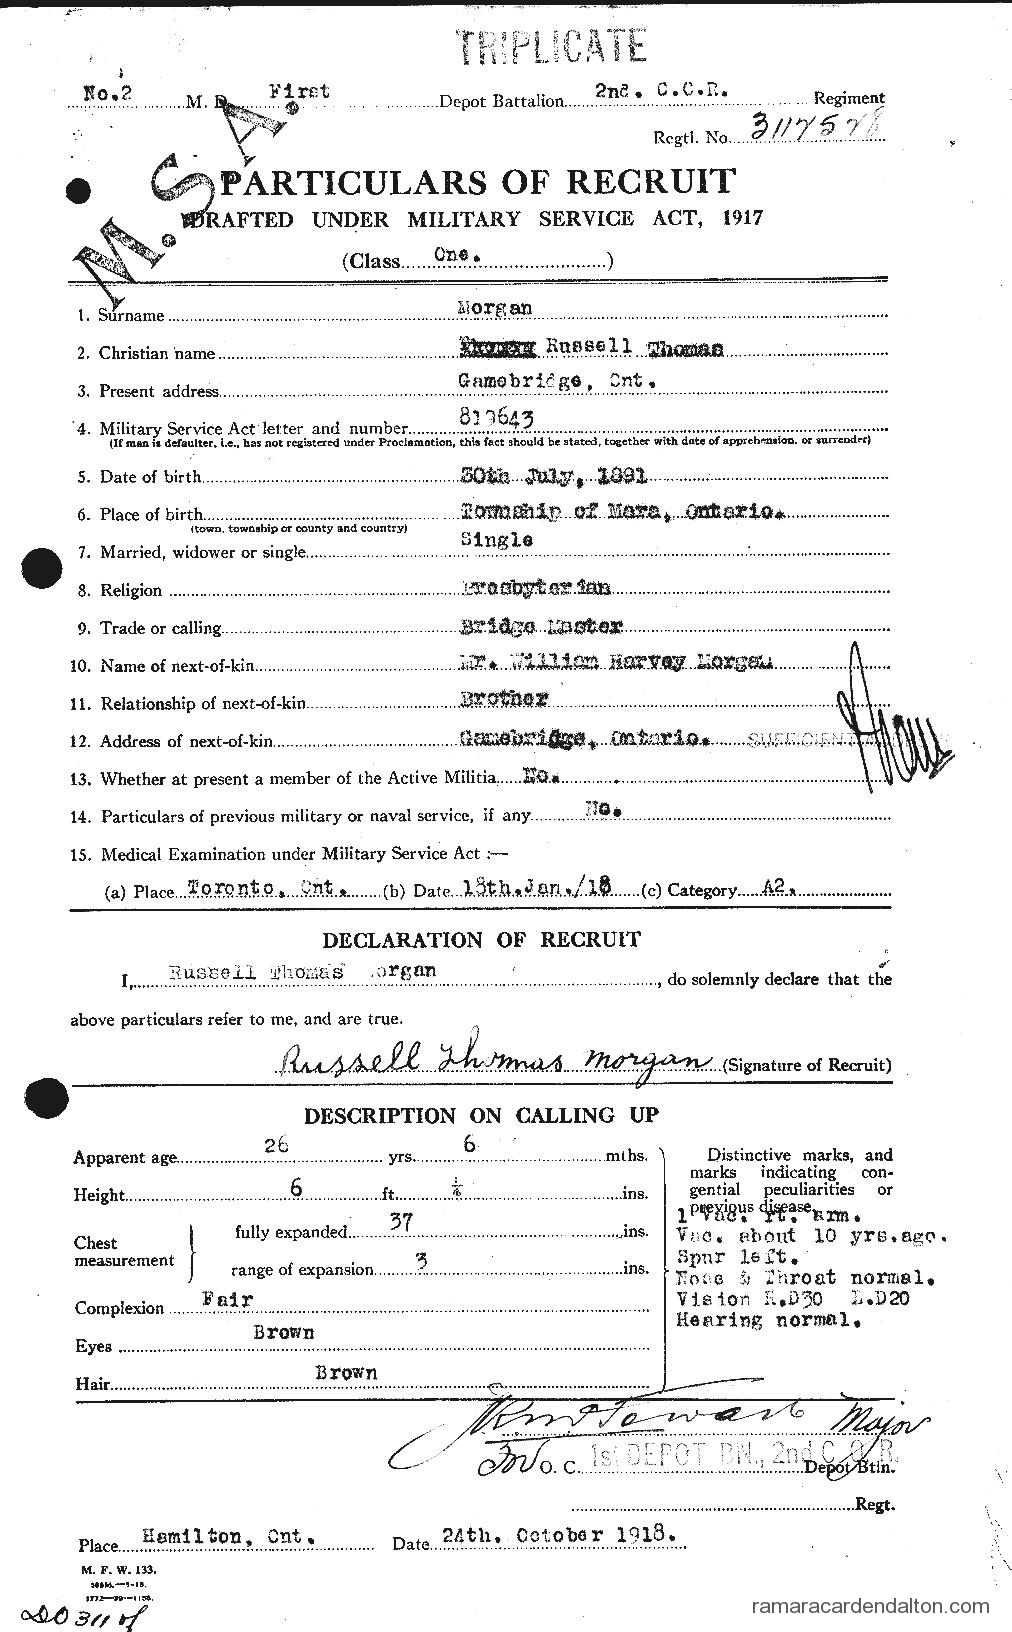 TRIPLICATE
No.2 M. D. First Depot Battalion 2nd. C.O.R. Regiment
Regtl. No. 3117578
M.S.A.
PARTICULARS OF RECRUIT
DRAFTED UNDER MILITARY SERVICE ACT, 1917
(Class One. )
1. Surname Morgan
2. Christian name Russell Thomas
3. Present address Gamebridge, Ont.
4. Military Service Act letter and number 819643
(If man is defaulter, i.e., has not registered under Proclamation, this fact should be stated, together with date of apprehension, or surrender)
5. Date of birth 30th July, 1891
6. Place of birth Township of Mara, Ontario.
(town, township or county and country)
7. Married, widower or single Single
8. Religion Presbyterian
9. Trade or calling Bridge Master
10. Name of next-of-kin Mr. William Harvey Morgan
11. Relationship of next-of-kin Brother
12. Address of next-of-kin Gamebridge, Ontario. SUFFICIENT
13. Whether at present a member of the Active Militia No.
14. Particulars of previous military or naval service, if any No.
15. Medical Examination under Military Service Act :—
(a) Place Toronto, Ont. (b) Date 18th.Jan./18 (c) Category A2.
DECLARATION OF RECRUIT
I, Russell Thomas organ, do solemnly declare that the
above particulars refer to me, and are true.
Russell Thomas Morgan (Signature of Recruit)
DESCRIPTION ON CALLING UP
Apparent age 26 yrs. 6 mths.
Height 6 ft. ins.
Chest measurement
fully expanded 37 ins.
range of expansion 3 ins.
Complexion Fair
Eyes Brown
Hair Brown
Distinctive marks, and
marks indicating con-
genital peculiarities or
previous disease.
1 Vac. rt. arm.
Vac. about 10 yrs.ago.
Spur left.
Nose & Throat normal.
Vision R.D30 L.D20
Hearing normal.
Major
For O. C. 1st DEPOT BN., 2nd C.O.R. Depot Btln.
Regt.
Place Hamilton, Ont. Date 24th. October 1918.
M. F. W. 133.
1772—39—1158.
DO 311
ramaracardendalton.com